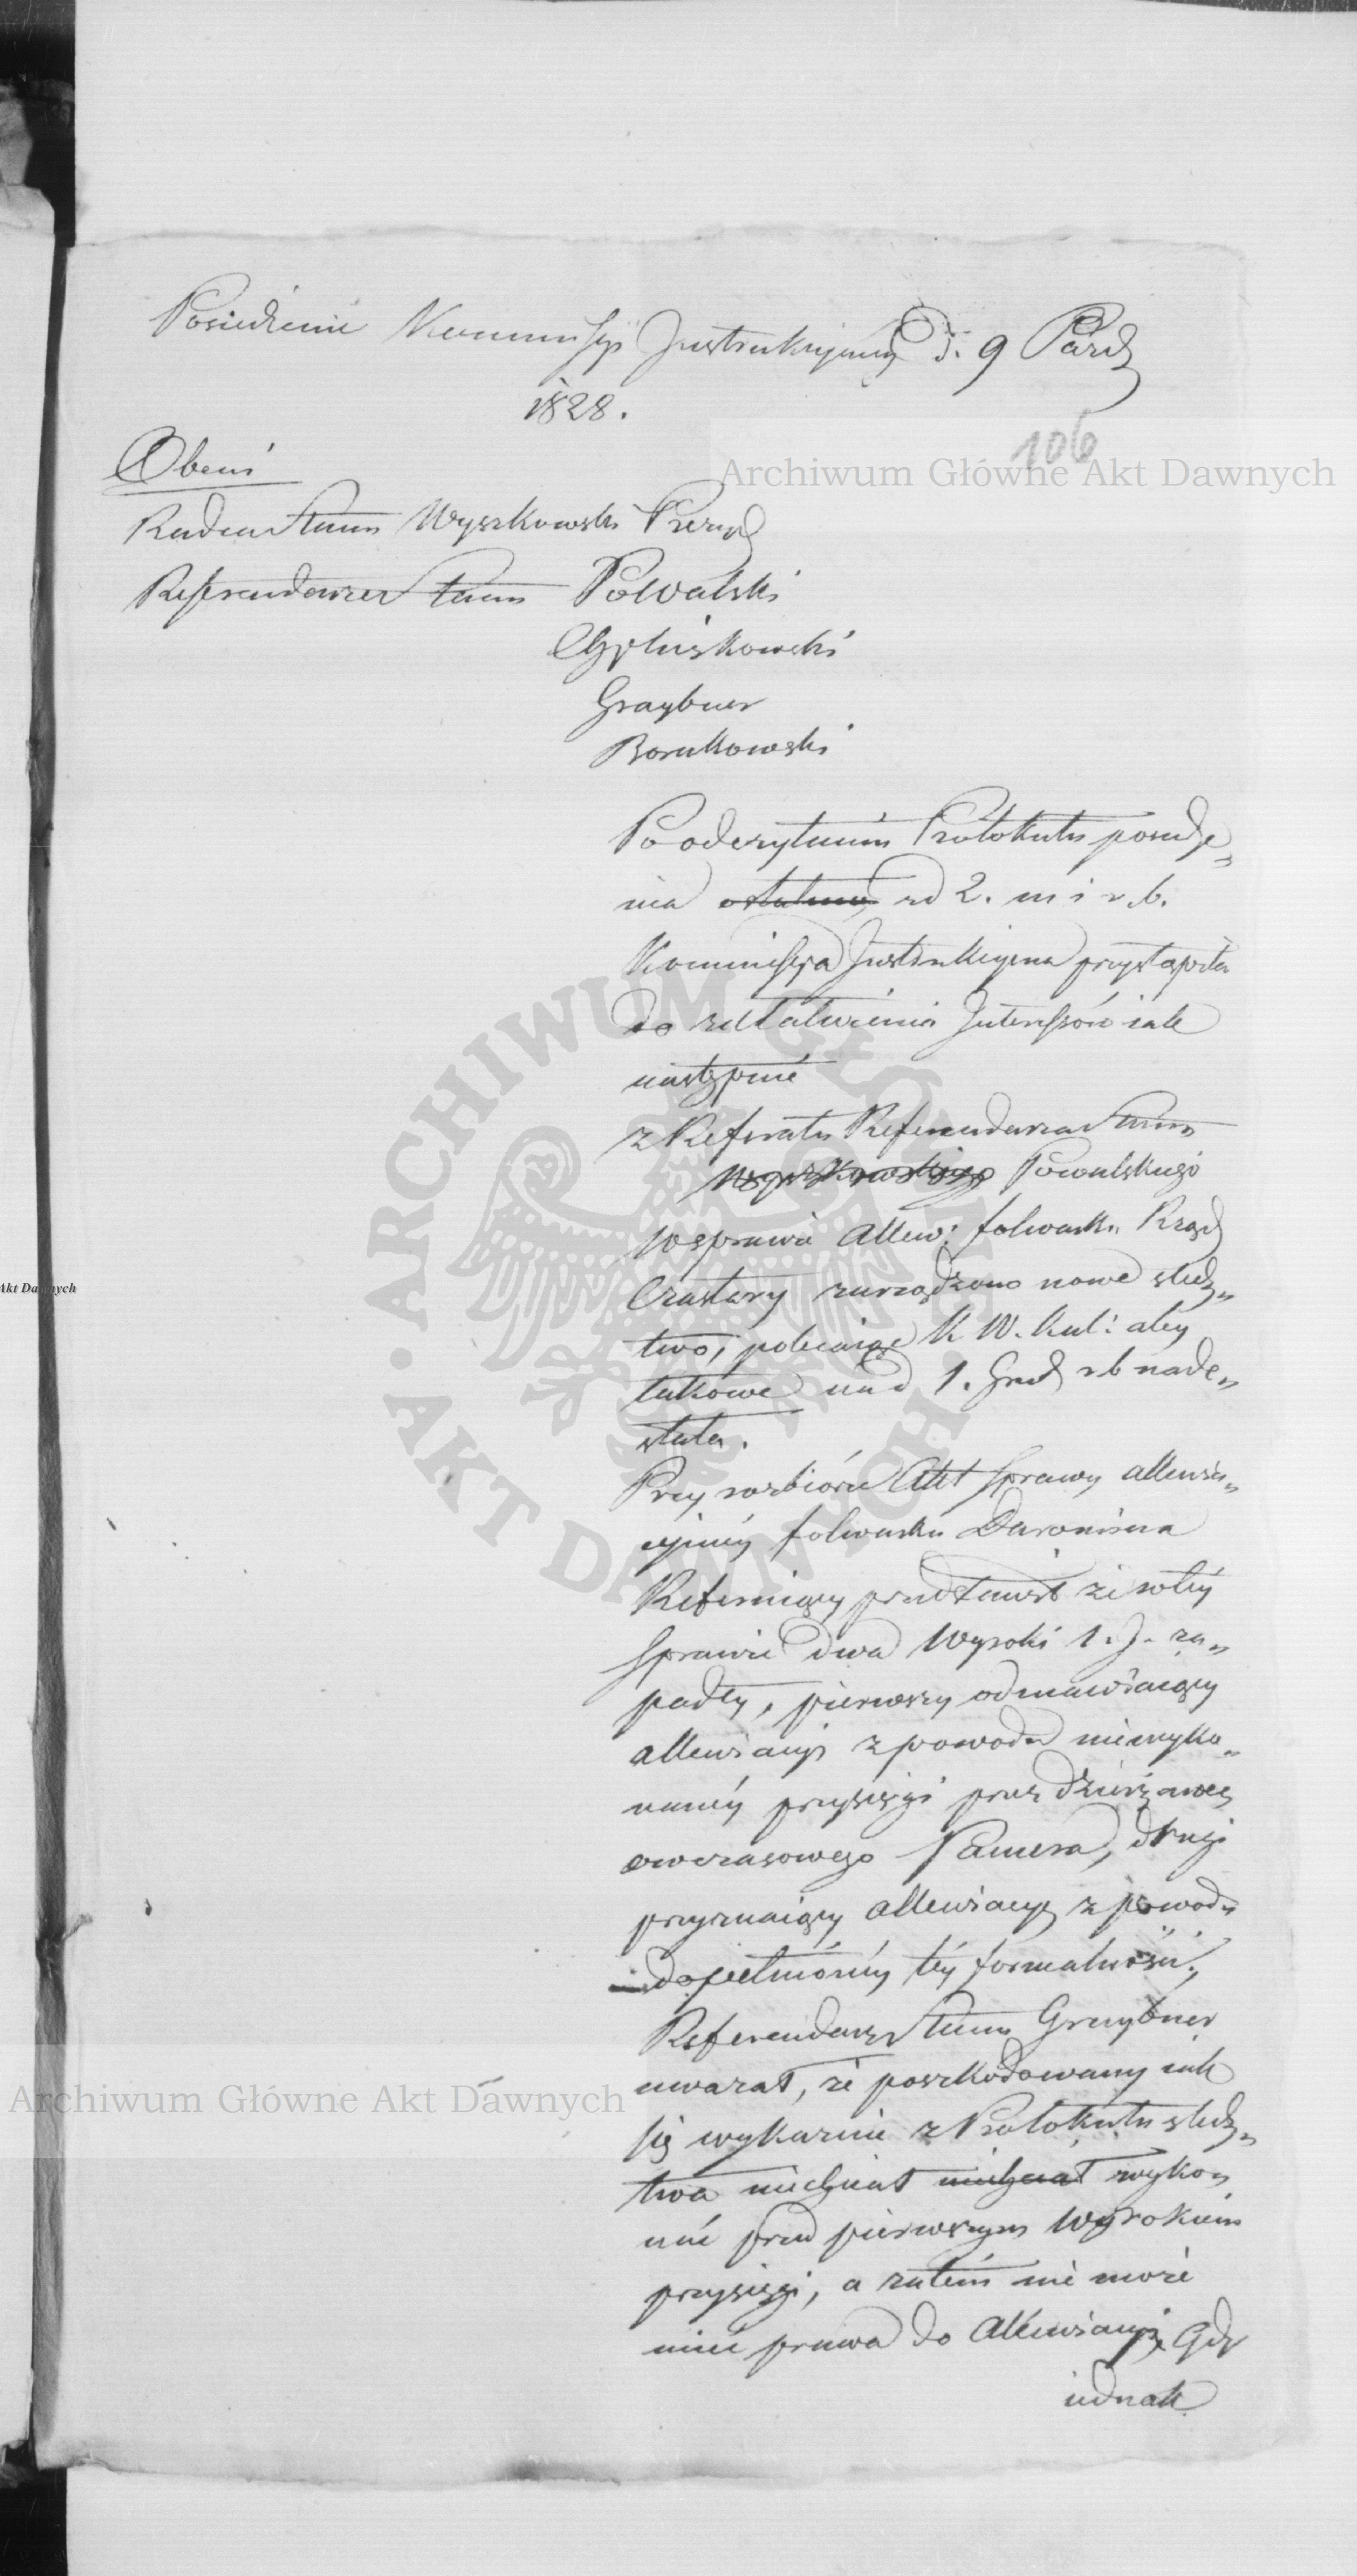 Posiedzenie Kommissyi Instrukcyiney D. 9 Paźd
1828.
106
Archiwum Główne Akt Dawnych
Obecni
Radca Stanu Wyszkowski Prezyd
Referendarze Stanu Powalski
Gliszkowski
Graybner
Borakowski
Po odczytaniu Protokułu posiedze„
nia ostatniej zd 2. m i r. b.
Kommissya Instrukcyina przystąpiła
do załatwienia Interessów iak
następuie
z Referatu Referendarza Stanu
Wyszkowskiego Powalskiego
W sprawie allew: folwarku Rząd
Czastary zarządzono nowe śledz„
two, polecaiąc K W. Kal: aby
takowe na d 1. Grud r b nade„
słała.
Przy rozbiorze Akt sprawy allewia„
cyiney folwarku Daroniera
Referuiący przedstawił że w tey
sprawie dwa Wyroki 1. J. za„
padły, pierwszy odmawiaiący
allewiacyi z powodu niewyko„
naney przysięgi przez dzierżawcę
owczasowego Pamera, drugi
przyznaiący allewiacyę z powodu
dopełnioney tey formalności.
Referendarz Stanu Graybner
uważał, że poszkodowany iak
się wykazuie z Protokułu śledz„
Archiwum Główne Akt Dawnych
twa niechciał niechciał wyko„
nać przed pierwszym Wyrokiem
przysięgi, a zatem nie może
mieć prawa do Allewiacyi, Gdy
iednak
ARCHIWUM GŁÓWNE
AKT DAWNYCH
Akt Dawnych